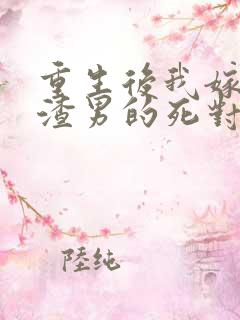 重生後我嫁
渣男的死對
陸純